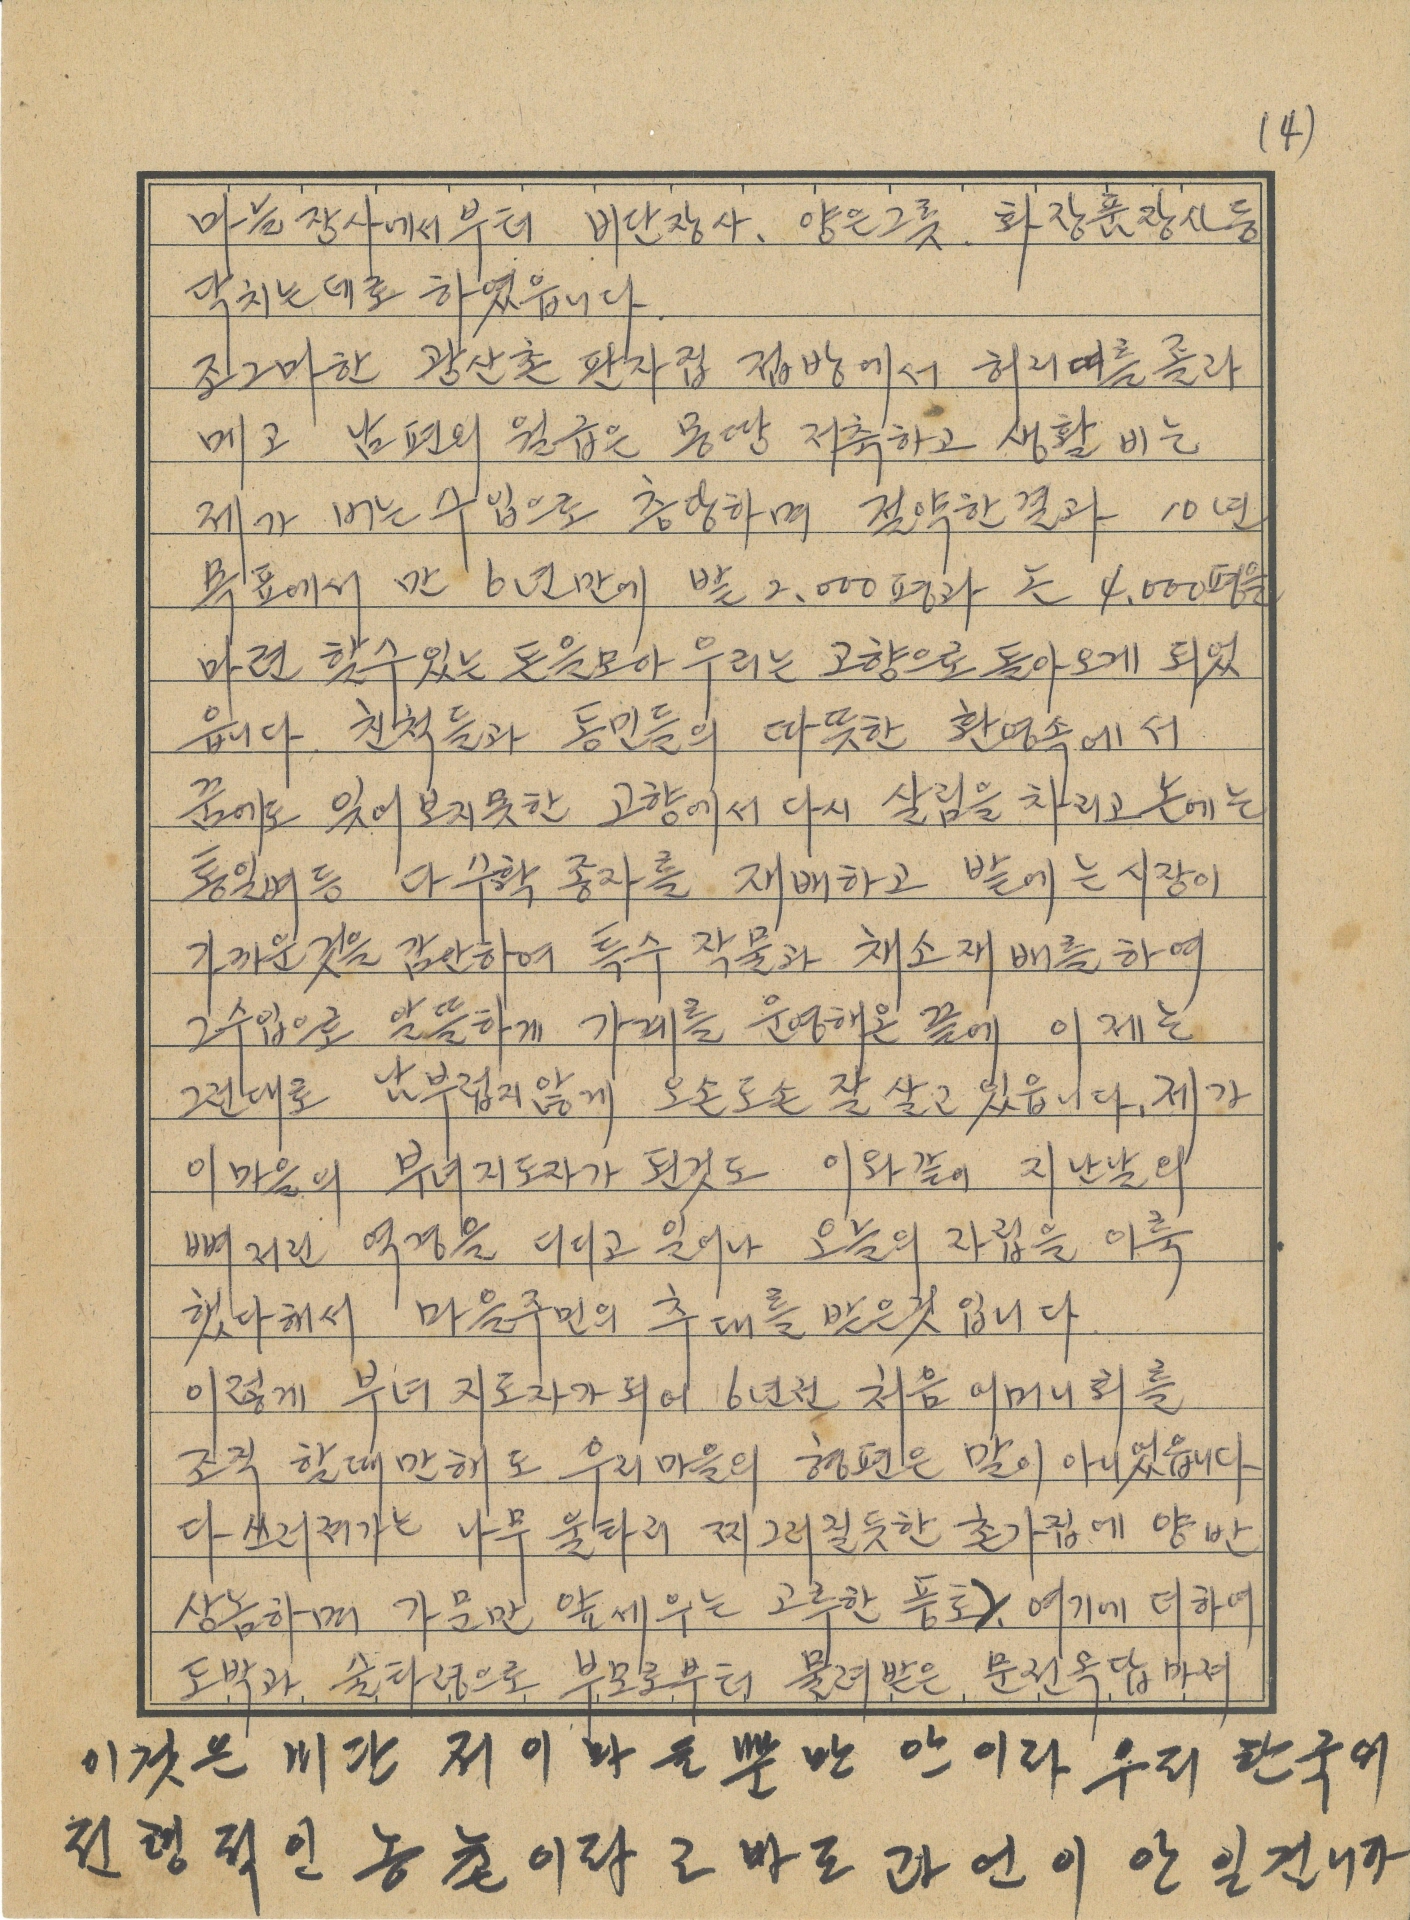 (4)
마늘장사에서부터 비단장사、양은그릇、화장품장사등
닥치는데로 하였읍니다.
조그마한 광산촌 판자집 접방에서 허리띠를 졸라
메고 남편의 월급은 몽땅 저축하고 생활비는
제가 버는 수입으로 충당하며 절약한결과 10년
목표에서 만 6년만에 밭 2,000평과 논 4,000평을
마련 할수있는 돈을모아 우리는 고향으로 돌아오게 되었
읍니다. 친척들과 동민들의 따뜻한 환영속에서
꿈에도 잊어보지못한 고향에서 다시 살림을 차리고 논에는
통일벼등 다수확 종자를 재배하고 밭에는 시장이
가까운것을 감안하여 특수작물과 채소재배를 하여
그수입으로 알뜰하게 가계를 운영해온 끝에 이제는
그런대로 남부럽지않게 오손도손 잘살고 있읍니다. 제가
이마을의 부녀지도자가 된것도 이와같이 지난날의
뼈저린 역경을 디디고 일어나 오늘의 자립을 이룩
했다해서 마을주민의 추대를 받은것 입니다.
이렇게 부녀 지도자가되어 6년전 처음 어머니회를
조직 할때만해도 우리마을의 형편은 말이 아니었읍니다.
다 쓰러져가는 나무 울타리 찌그러질듯한 초가집에 양반
상놈하며 가문만 앞세우는 고루한 풍토、여기에 더하여
도박과 술타령으로 부모로부터 물려받은 문전옥답마져
이것은 비단 저이 마을뿐만 안이라 우리 한국에
전형적인 농촌이랍고 바도 과언이 안일건니까